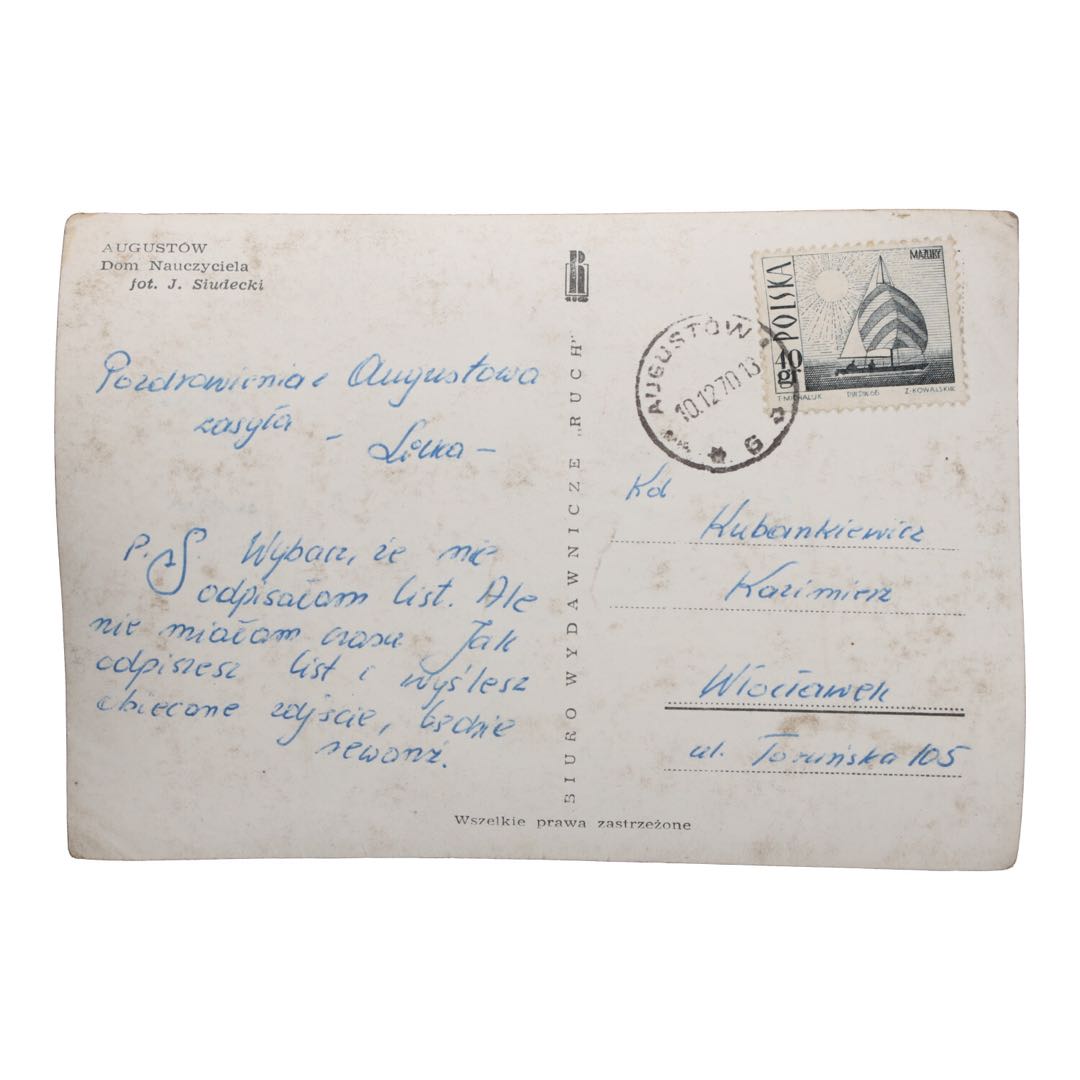 AUGUSTÓW
Dom Nauczyciela
fot. J. Siudecki
Pozdrowienia z Augustowa
zasyła –
Lilka –
P.S. Wybacz, że nie
odpisałam list. Ale
nie miałam czasu. Jak
odpiszesz list i wyślesz
obiecane zdjęcie, będzie
rewanż.
BIURO WYDAWNICZE „RUCH"
RUCH
POLSKA
MAZURY
40
gr.
T. MICHALUK PWPW.66 Z. KOWALSKI
AUGUSTÓW
10.12.70.13
G
Kol
Kubankiewicz
Kazimierz
Włocławek
ul. Toruńska 105
Wszelkie prawa zastrzeżone